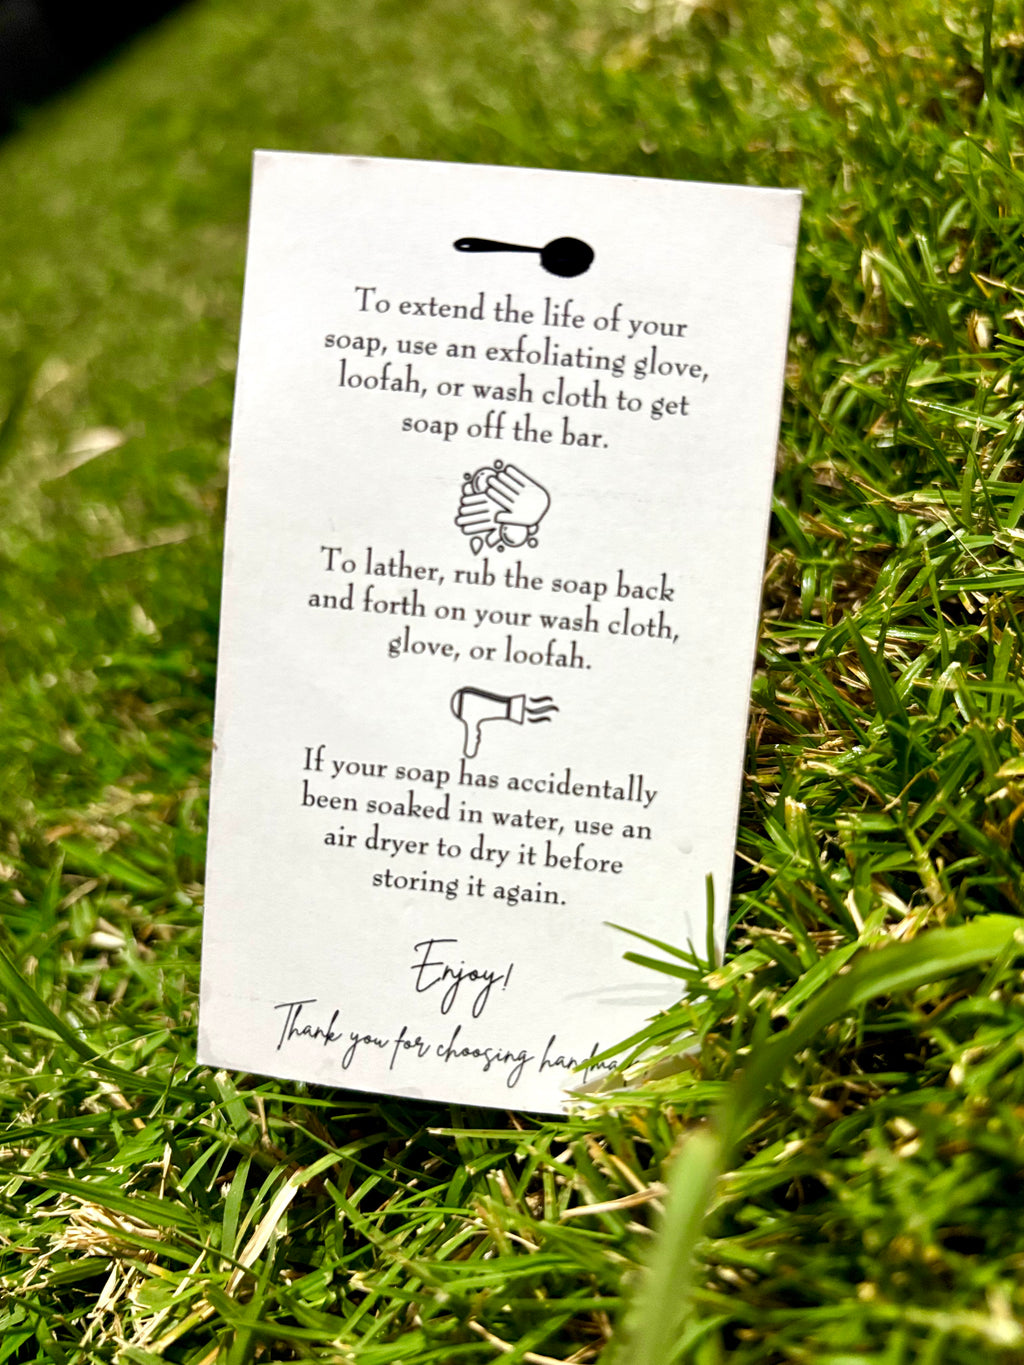 To extend the life of your
soap, use an exfoliating glove,
loofah, or wash cloth to get
soap off the bar.
To lather, rub the soap back
and forth on your wash cloth,
glove, or loofah.
If your soap has accidentally
been soaked in water, use an
air dryer to dry it before
storing it again.
Enjoy!
Thank you for choosing